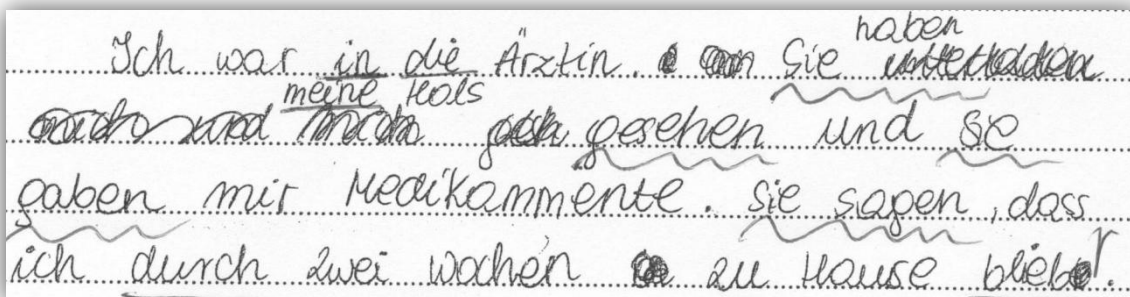 Ich war in die Ärztin. Sie haben
meine Hals gesehen und se
gaben mir Medikammente. Sie sagen, dass
ich durch zwei wochen zu Hause bleib